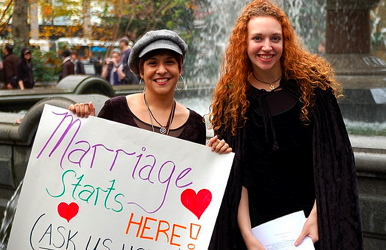 Marriage
Starts
HERE!
(ASK US